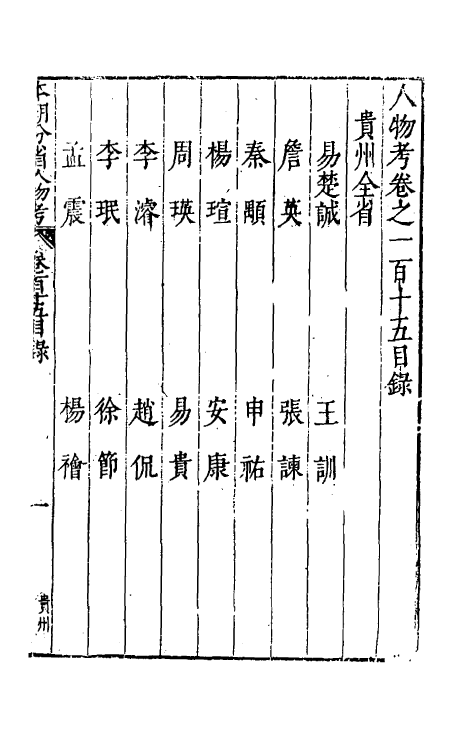 人物考卷之一百十五目錄
貴州全省
易楚誠 王訓
詹英 張諫
秦顒 申祐
楊瑄 安康
周瑛 易貴
李濬 趙侃
李珉 徐節
孟震 楊禬
本朝分省人物考 卷一百十五目錄 一 貴州